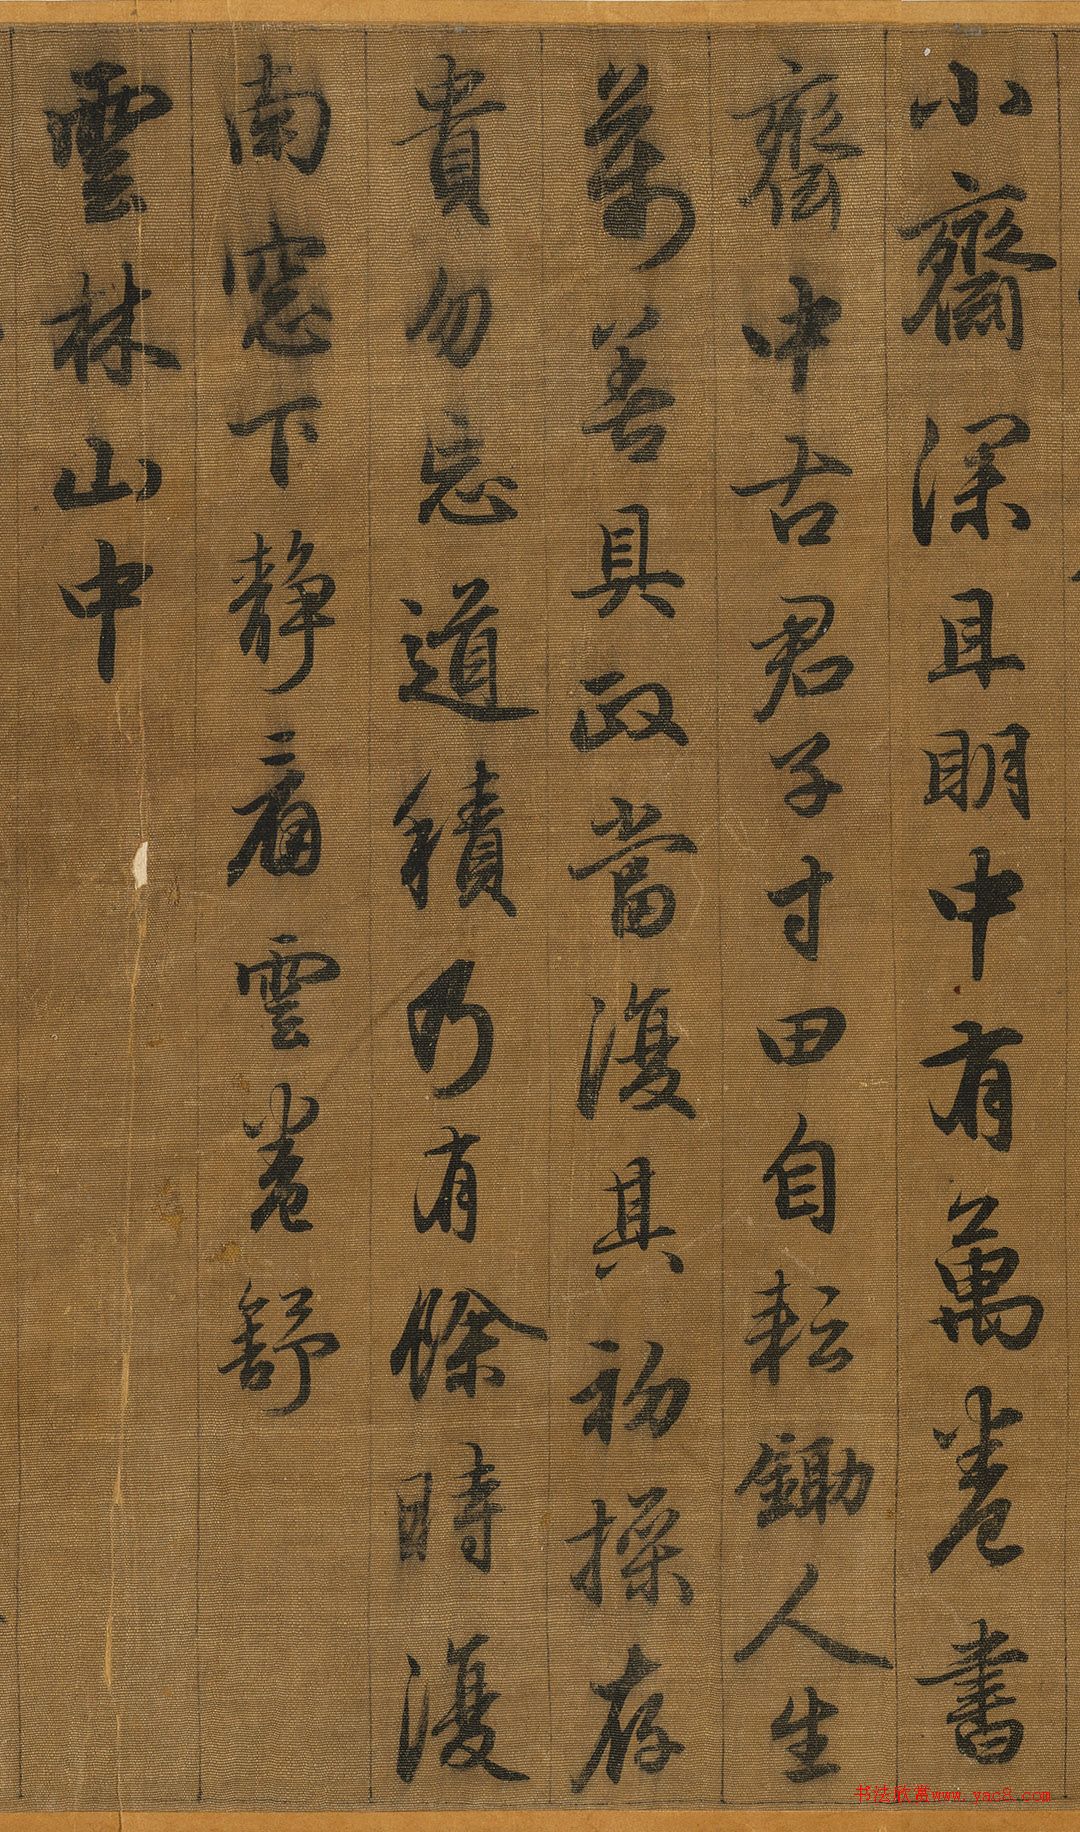 小齋深且明中有萬卷書
齋中古君子寸田自耘鋤人生
萬善具政當復其初操存
貴勿忘道積乃有餘時復
南窓下靜看雲卷舒
雲林山中
书法欣赏www.yac8.com